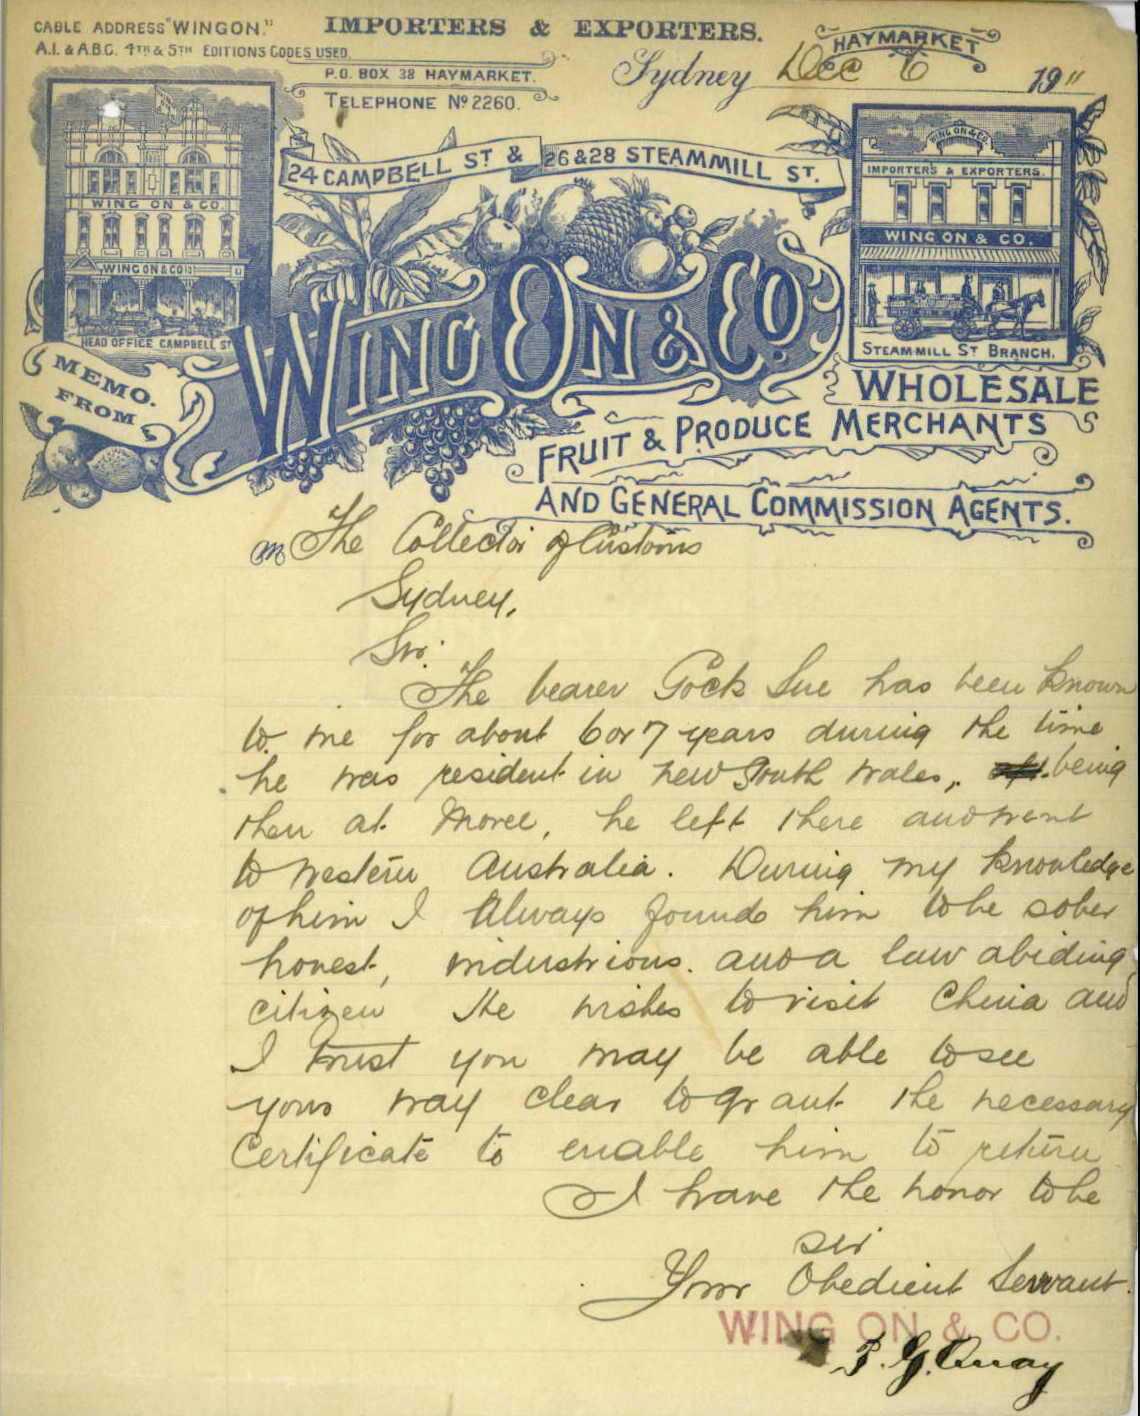 CABLE ADDRESS "WINGON."
A.I. & A.B.C. 4TH & 5TH EDITIONS CODES USED.
IMPORTERS & EXPORTERS.
P.O. BOX 38 HAYMARKET.
TELEPHONE Nº 2260.
HAYMARKET
Sydney Dec 6 1911
24 CAMPBELL ST & 26 & 28 STEAMMILL ST.
WING ON & CO.
WING ON & CO
HEAD OFFICE CAMPBELL ST
WING ON & CO
IMPORTERS & EXPORTERS.
WING ON & CO.
STEAMMILL ST BRANCH.
MEMO. FROM
WING ON & CO.
WHOLESALE
FRUIT & PRODUCE MERCHANTS
AND GENERAL COMMISSION AGENTS.
The Collector of Customs
Sydney,
Sir:
The bearer Gock Sue has been known
to me for about 6 or 7 years during the time
he was resident in New South Wales, being
then at Moree, he left there and went
to Western Australia. During my knowledge
of him I Always found him to be sober
honest, industrious. and a law abiding
citizen He wishes to visit China and
I trust you may be able to see
your way clear to grant the necessary
Certificate to enable him to return
I have the honor to be
sir
Your Obedient Servant.
WING ON & CO.